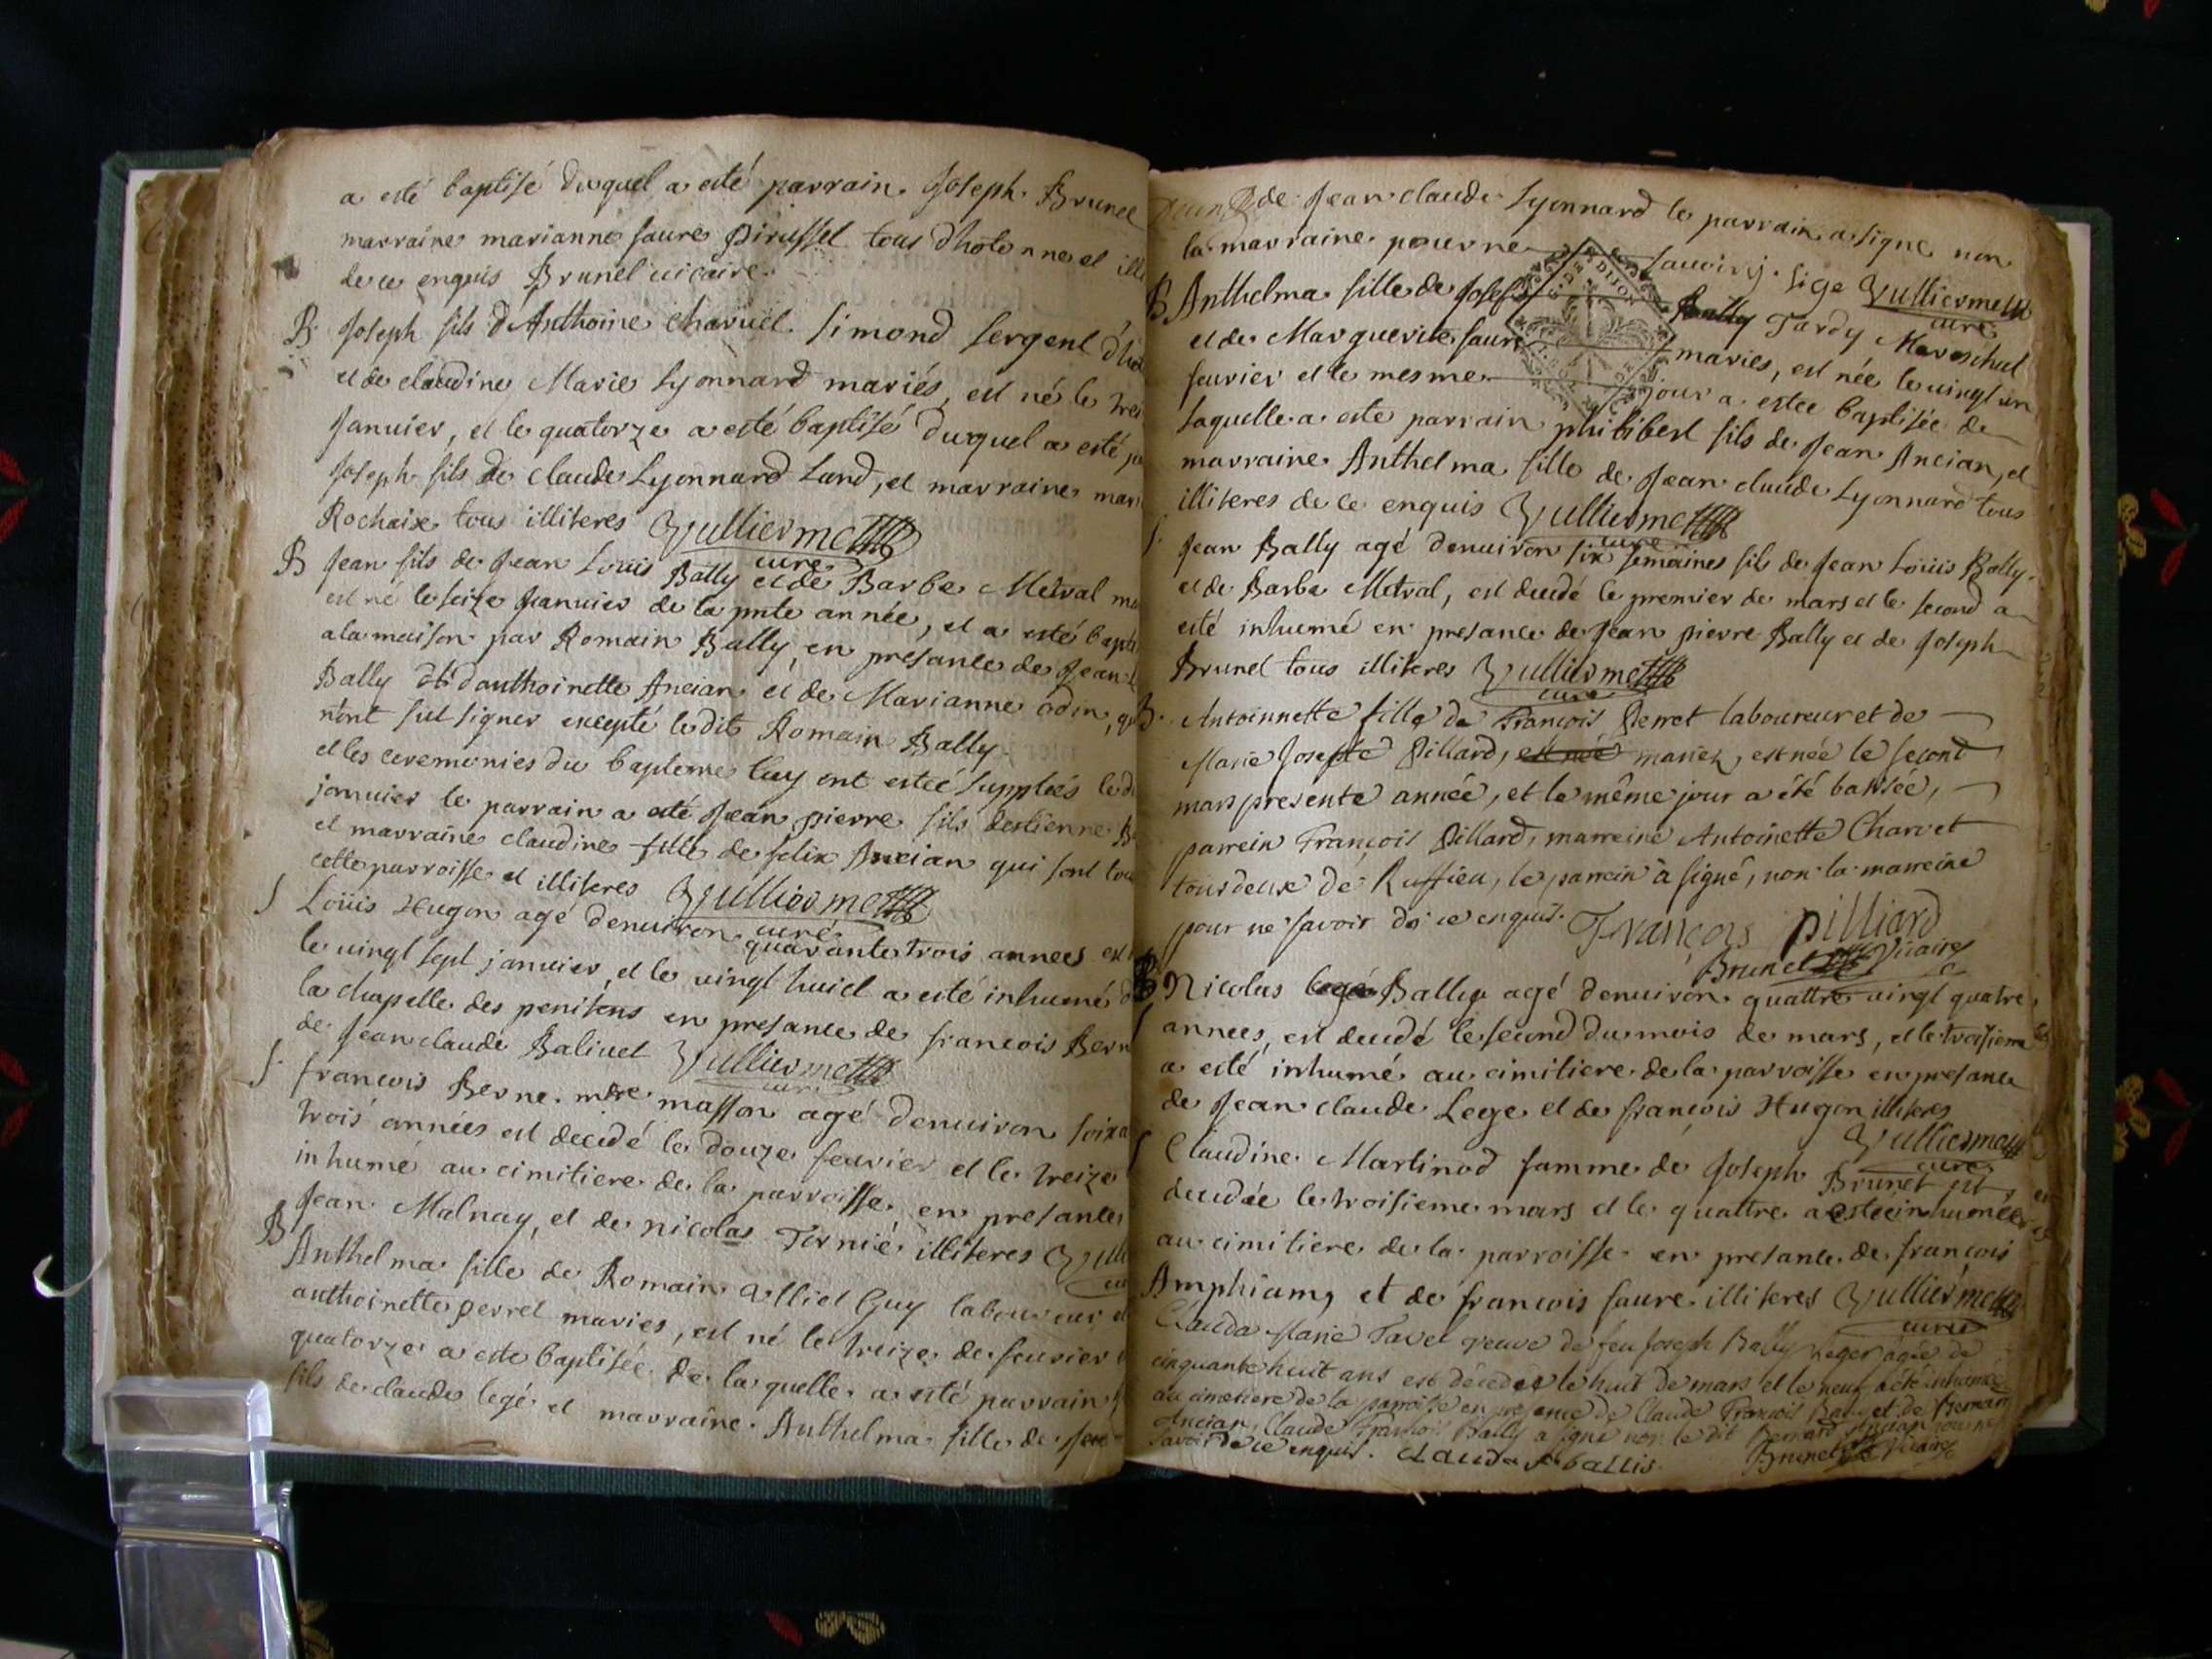 a esté baptisé duquel a esté parrain Joseph Brunel
marraine marianne faure pirussel tous dhotonne et ille
de ce enquis Brunel vicaire
B Joseph fils d'Anthoine charuel simond sergent
et de claudine Marie Lyonnard mariés, est né le trei
Januier, et le quatorze a esté baptisé duquel a esté
Joseph fils de claude Lyonnard Land, et marraine mar
Rochaix tous illiteres Vulliermet
curé
B Jean fils de Jean Loüis Bally et de Barbe Metral ma
est né le seize Januier de la pnte année, et a esté bapti
a la maison par Romain Bally, en presance de Jean
Bally d'anthoinette Ancian et de Marianne odin, qui
n'ont sut signer excepté ledit Romain Bally
et les ceremonies du bapteme luy ont esteé suppleés le d
januier le parrain a esté Jean pierre fils destienne B
et marraine claudine fille de felix Ancian qui sont tous
cette parroisse et illiteres Vulliermet
curé
S Loüis Hugon agé denuiron quarante trois annees est
le vingt sept januier, et le vingt huict a esté inhumé d
la chapelle des penitens en presance de francois Bern
de Jean claude Baliuet Vulliermet
curé
S francois Berne mtre masson agé denuiron soixa
trois années est decedé le douze feurier et le treize
inhumé au cimitiere de la parroisse en presance
Jean Malnay, et de nicolas Tornié illiteres Vulli
B Anthelma fille de Romain Ulliet Guy laboureur et
anthoinette perret maries, est né le treize de feurier
quatorze a este baptisée de la quelle a esté parrain
fils de claude legé et marraine Anthelma fille de
de Jean claude Lyonnard le parrain a signe non
la marraine pour ne sauoir j. sige Vulliermet
curé
B Anthelma fille de Josef Bailly Tardy Mareschal
et de Marguerite faure maries, est née le vingt un
feurier et le mesme jour a estee baptisée de
laquelle a este parrain philibert fils de Jean Ancian, et
marraine Anthelma fille de Jean claude Lyonnard tous
illiteres de ce enquis Vulliermet
curé
S Jean Bally agé denuiron six semaines fils de Jean Loüis Bally
et de Barbe Metral, est decedé le premier de mars et le second a
esté inhumé en presance de Jean pierre Bally et de Joseph
Brunel tous illiteres Vulliermet
curé
B. Antoinnette fille de François Perret laboureur et de
Marie Josepte Pillard, est née mariez, est née le second
mars presente année, et le même jour a été batisée,
parrein François Pillard, marreine Antoinette Charvet
tous deux de Ruffieu, le parrein à signé, non la marreine
pour ne savoir de ce enquis. François Pilliard
Brunet Vicaire
Nicolas Bally agé denuiron quattre vingt quatre
annees, est decedé le second du mois de mars, et le troisieme
a esté inhumé au cimitiere de la parroisse en presance
de Jean claude Lege et de françois Hugon illiteres
Vulliermet
curé
S Claudine Martinod famme de Joseph Brunet
decedée le troisieme mars et le quattre a estée inhumée
au cimitiere de la parroisse en presance de françois
Amphiam, et de francois faure illiteres Vulliermet
curé
Clauda Marie Tavel veuve de feu Joseph Bally Leger agée de
cinquante huit ans est décédée le huit de mars et le neuf a été inhumée
au cimetiere de la paroisse en presence de Claude François Bally et de Bernard
Ancian, Claude François Bally a signé non le dit Bernard Ancian pour ne
savoir de ce enquis. Claude f. ballis Brunet Vicaire